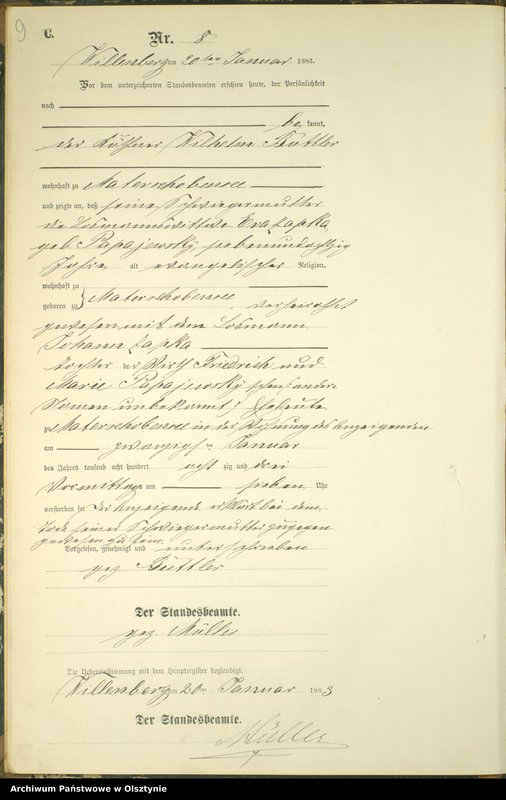 9
C.
Nr. 8
Willenberg am 20ten Januar 1883.
Vor dem unterzeichneten Standesbeamten erschien heute, der Persönlichkeit
nach
be kannt,
der Käthner Wilhelm Buttler
wohnhaft zu Materschobensee
und zeigte an, daß seine Schwiegermutter
die Losmannswittwe Eva Zapka
geb. Papajewsky, siebenundachtzig
Jahre alt evangelischer Religion,
wohnhaft zu
geboren zu Materschobensee verheirathet
gewesen mit dem Losmann
Johann Zapka
Tochter der Wirth Friedrich und
Marie Papajewsky
Namen unbekannt, Eheleute
zu Materschobensee in der Wohnung des Anzeigenden
am zwanzigsten Januar
des Jahres tausend acht hundert acht zig und drei
Vormittags um sieben Uhr
verstorben sei der Anzeigende erklärt bei dem
Tode seiner Schwiegermutter zugegen
gewesen zu sein.
Vorgelesen, genehmigt und unterschrieben
gez Buttler
Der Standesbeamte.
gez Müller
Die Uebereinstimmung mit dem Hauptregister beglaubigt.
Willenberg am 20ten Januar 1883
Der Standesbeamte.
Müller
Archiwum Państwowe w Olsztynie